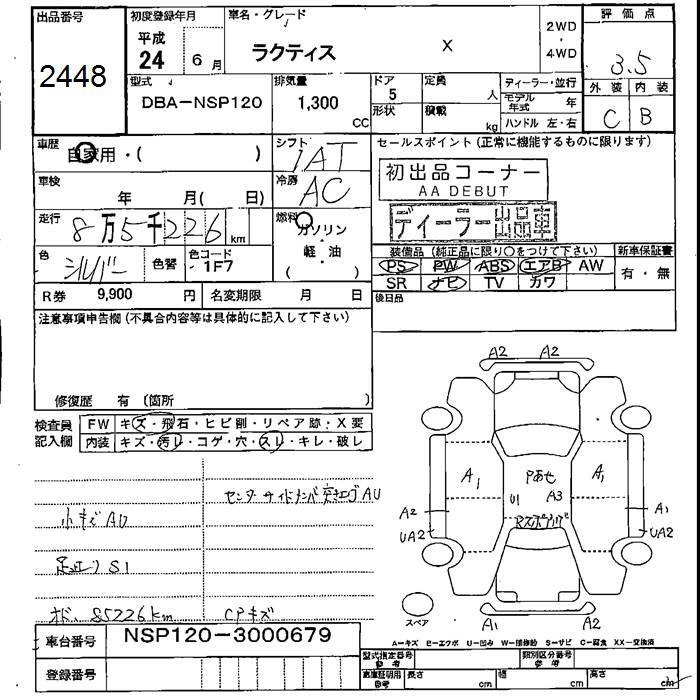 出品番号
2448
初度登録年月
平成
24 6月
車名・グレード
ラクティス X
2WD
・
4WD
評価点
3.5
外装 内装
C B
型式
DBA-NSP120
排気量
1,300
CC
ドア
5
形状
定員
人
積載
kg
ディーラー・並行
モデル年式 年
ハンドル 左・右
車歴
自家用・( )
シフト
IAT
車検
年 月( 日)
冷房
AC
走行
8万5千226km
燃料
ガソリン
・
軽・油
( )
色
シルバー
色替
色コード
1F7
R券 9,900 円
名変期限 月 日
セールスポイント (正常に機能するものに限ります)
初出品コーナー
AA DEBUT
ディーラー出品車
装備品 (純正品に限り○をつけて下さい)
新車保証書
PS PW ABS エアB AW
SR ナビ TV カワ
有・無
後日品
注意事項申告欄 (不具合内容等は具体的に記入して下さい)
修復歴 有 〔箇所 〕
検査員
記入欄
FW キズ・飛石・ヒビ割・リペア跡・X要
内装 キズ・汚れ・コゲ・穴・スレ・キレ・破レ
センターサイドメンバ突き上げ AU
小キズ AU
S1
85226km
CPキズ
A2 A2
A1 A1
Pあせ
U1 A3
A2 A1
UA2 UA2
A1 A2
スペア
A-キズ E-エクボ U-凹み W-補修跡 S-サビ C-腐食 XX-交換済
車台番号
NSP120-3000679
登録番号
型式指定番号
参考
類別区分番号
参考
車庫証明用
参考
長さ cm
幅 cm
高さ cm